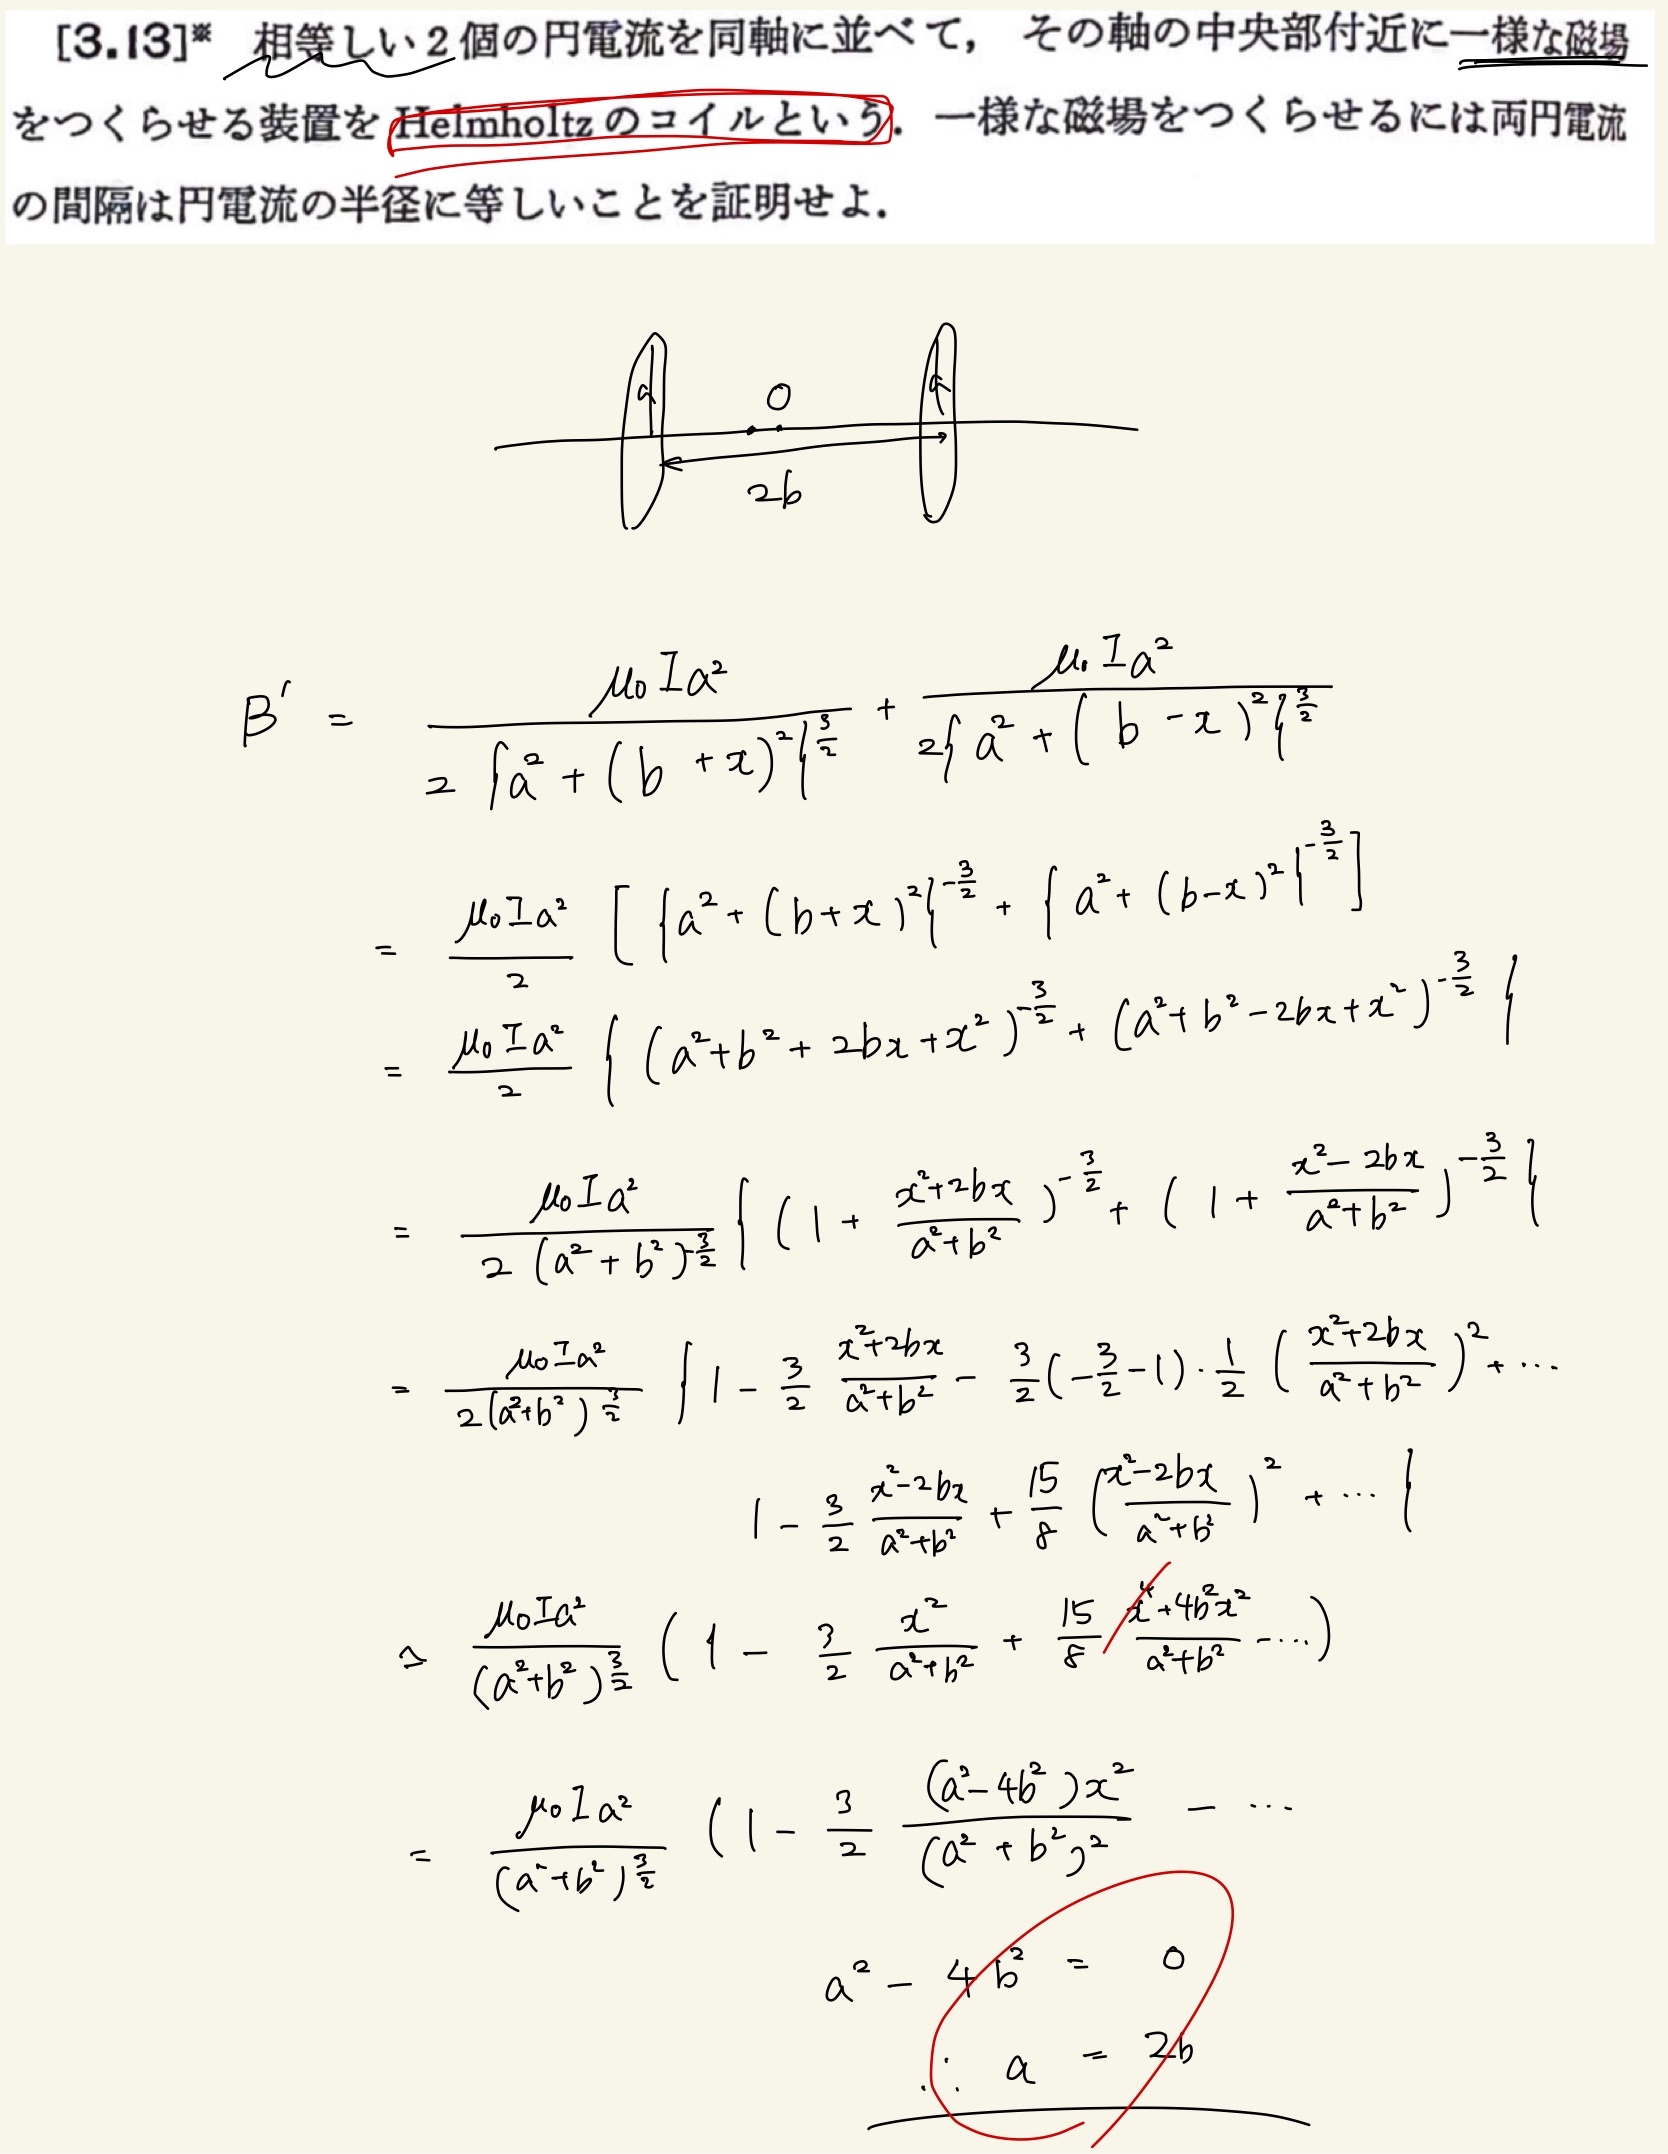 [3.13]※ 相等しい2個の円電流を同軸に並べて, その軸の中央部付近に一様な磁場
をつくらせる装置を Helmholtz のコイルという. 一様な磁場をつくらせるには両円電流
の間隔は円電流の半径に等しいことを証明せよ.
a O a
2b
B' = μ₀Ia² / 2{a² + (b + x)²}^{3/2} + μ₀Ia² / 2{a² + (b - x)²}^{3/2}
= μ₀Ia²/2 [{a² + (b+x)²}^{-3/2} + {a² + (b-x)²}^{-3/2}]
= μ₀Ia²/2 {(a²+b²+2bx+x²)^{-3/2} + (a²+b²-2bx+x²)^{-3/2}}
= μ₀Ia² / 2(a²+b²)^{-3/2} {(1 + (x²+2bx)/(a²+b²))^{-3/2} + (1 + (x²-2bx)/(a²+b²))^{-3/2}}
= μ₀Ia² / 2(a²+b²)^{3/2} {1 - 3/2 (x²+2bx)/(a²+b²) - 3/2(-3/2-1)·1/2 ((x²+2bx)/(a²+b²))² + ...
1 - 3/2 (x²-2bx)/(a²+b²) + 15/8 ((x²-2bx)/(a²+b²))² + ...}
≃ μ₀Ia² / (a²+b²)^{3/2} (1 - 3/2 x²/(a²+b²) + 15/8 (x⁴+4b²x²)/(a²+b²) - ...)
= μ₀Ia² / (a²+b²)^{3/2} (1 - 3/2 (a²-4b²)x²/(a²+b²)² - ...
a² - 4b² = 0
∴ a = 2b